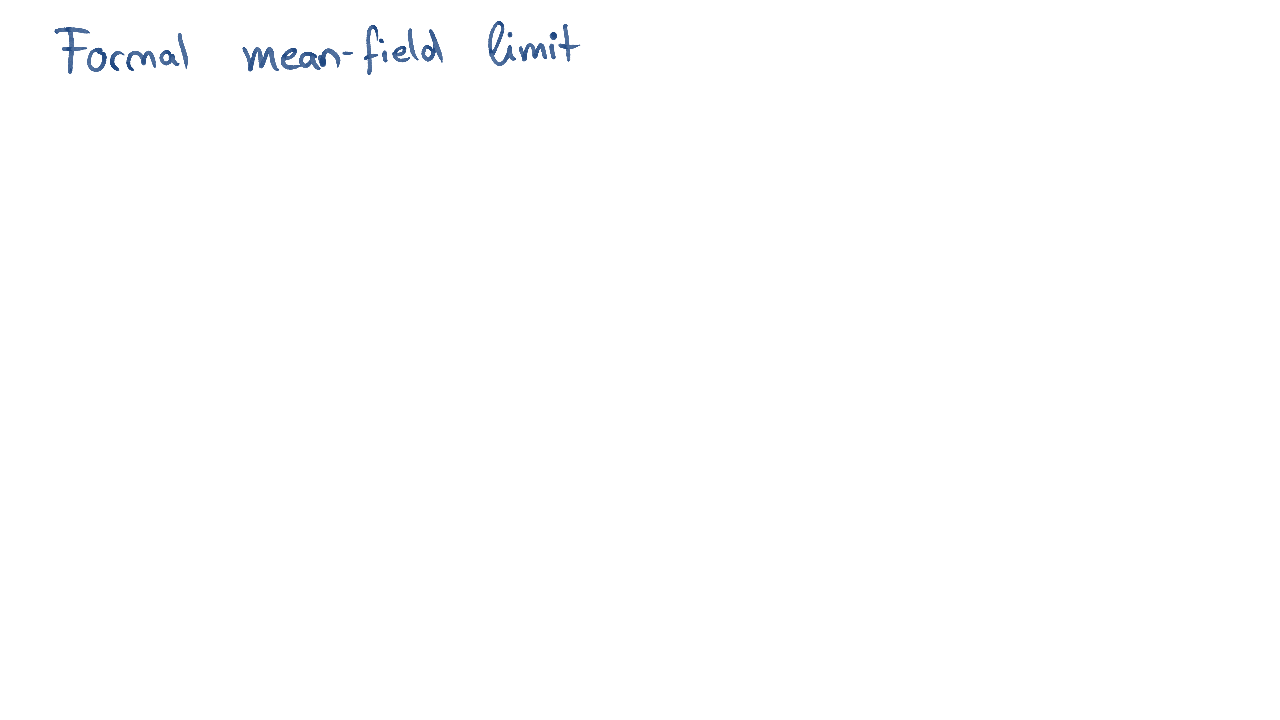 Formal mean-field limit